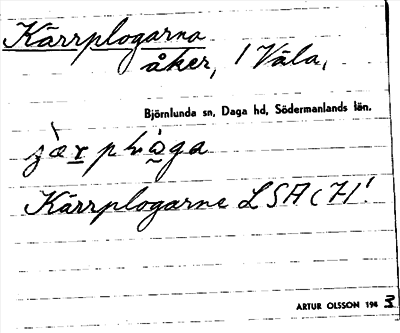 Kärrplogarna
åker, 1 Väla,
Björnlunda sn, Daga hd, Södermanlands län.
Kärrplogarne LSA C 7-1!
ARTUR OLSSON 194 3